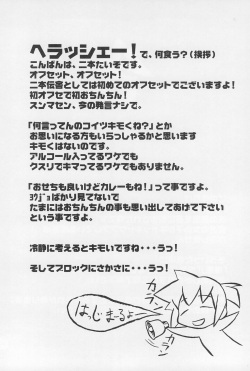 ヘラッシェー!で、何食う?(挨拶)
こんばんは、二本たいぞです。
オフセット、オフセット!
二本伝書としては初めてのオフセットでございますよ!
初オフセで初おちんちん!
スンマセン、今の発言ナシで。
「何言ってんのコイツキモくね?」とか
お思いになる方もいらっしゃるかと思います
キモくはないのです。
アルコール入ってるワケでも
クスリでキマってるワケでもありません。
「おせちも良いけどカレーもね!」って事ですよ。
ばっかり見てないで
たまにはおちんちんの事も思い出してあげて下さい
という事ですよ。
冷静に考えるとキモいですね・・・うっ!
そしてブロックにさかさに・・・うっ!
はっじまーるよ
カラン
カラン